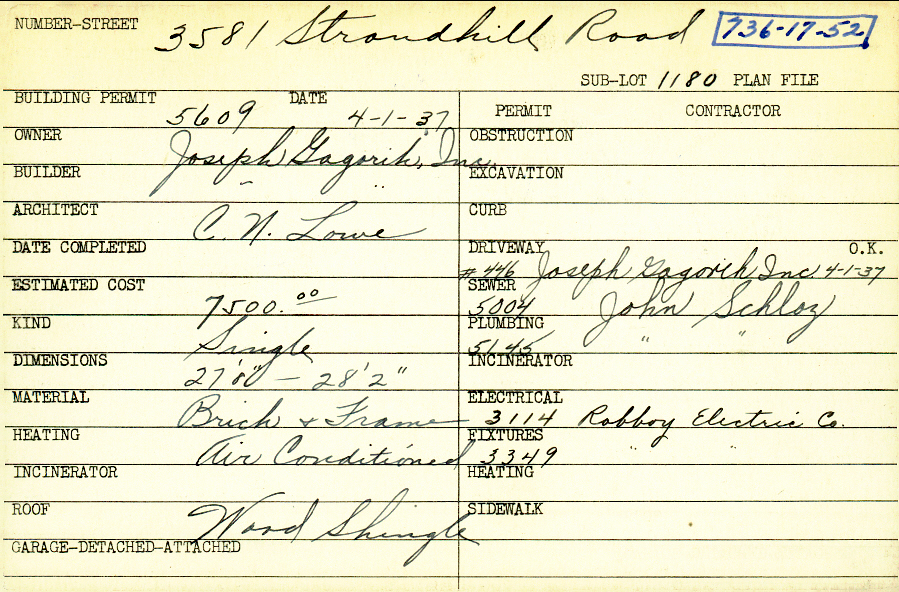 NUMBER-STREET 3581 Strandhill Road 736-17-52
SUB-LOT 1180 PLAN FILE
BUILDING PERMIT 5609 DATE 4-1-37
PERMIT CONTRACTOR
OWNER Joseph Gagorik, Inc.
OBSTRUCTION
BUILDER " "
EXCAVATION
ARCHITECT C. N. Lowe
CURB
DATE COMPLETED
DRIVEWAY O.K.
# 446 Joseph Gagorik Inc. 4-1-37
ESTIMATED COST 7500.00
SEWER
5004 John Schloz
KIND Single
PLUMBING
5145 " "
DIMENSIONS 27'8" - 28'2"
INCINERATOR
MATERIAL Brick & Frame
ELECTRICAL
3114 Robboy Electric Co.
HEATING Air Conditioned
FIXTURES
3349 " "
INCINERATOR
HEATING
ROOF Wood Shingle
SIDEWALK
GARAGE-DETACHED-ATTACHED